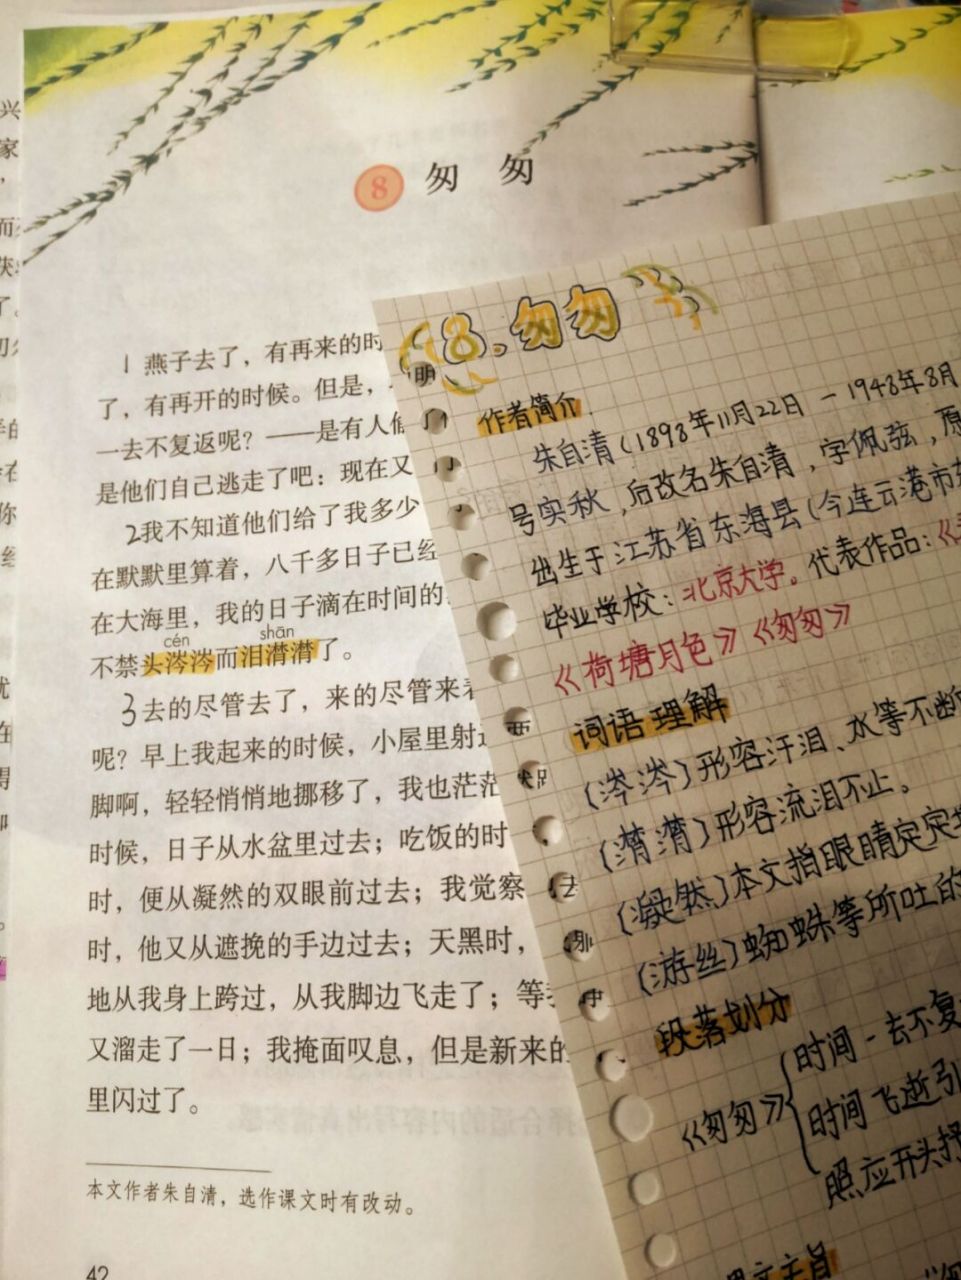 8 匆 匆
1 燕子去了，有再来的时
了，有再开的时候。但是，
一去不复返呢？——是有人偷
是他们自己逃走了吧：现在又
2我不知道他们给了我多少
在默默里算着，八千多日子已经
在大海里，我的日子滴在时间的
cén shān
不禁头涔涔而泪潸潸了。
3去的尽管去了，来的尽管来着
呢？早上我起来的时候，小屋里射进
脚啊，轻轻悄悄地挪移了，我也茫茫
时候，日子从水盆里过去；吃饭的时
时，便从凝然的双眼前过去；我觉察
时，他又从遮挽的手边过去；天黑时，
地从我身上跨过，从我脚边飞走了；等
又溜走了一日；我掩面叹息，但是新来的
里闪过了。
本文作者朱自清，选作课文时有改动。
42
8.匆匆
作者简介
朱自清（1898年11月22日－1948年8月
号实秋，后改名朱自清，字佩弦，原
出生于江苏省东海县（今连云港市东
毕业学校：北京大学。代表作品：《
《荷塘月色》《匆匆》
词语理解
（涔涔）形容汗泪、水等不断
（潸潸）形容流泪不止。
（凝然）本文指眼睛定定
（游丝）蜘蛛等所吐的
段落划分
《匆匆》
时间一去不复
时间飞逝引
照应开头抒
兴
家
而
获
了。
你
经
优
在